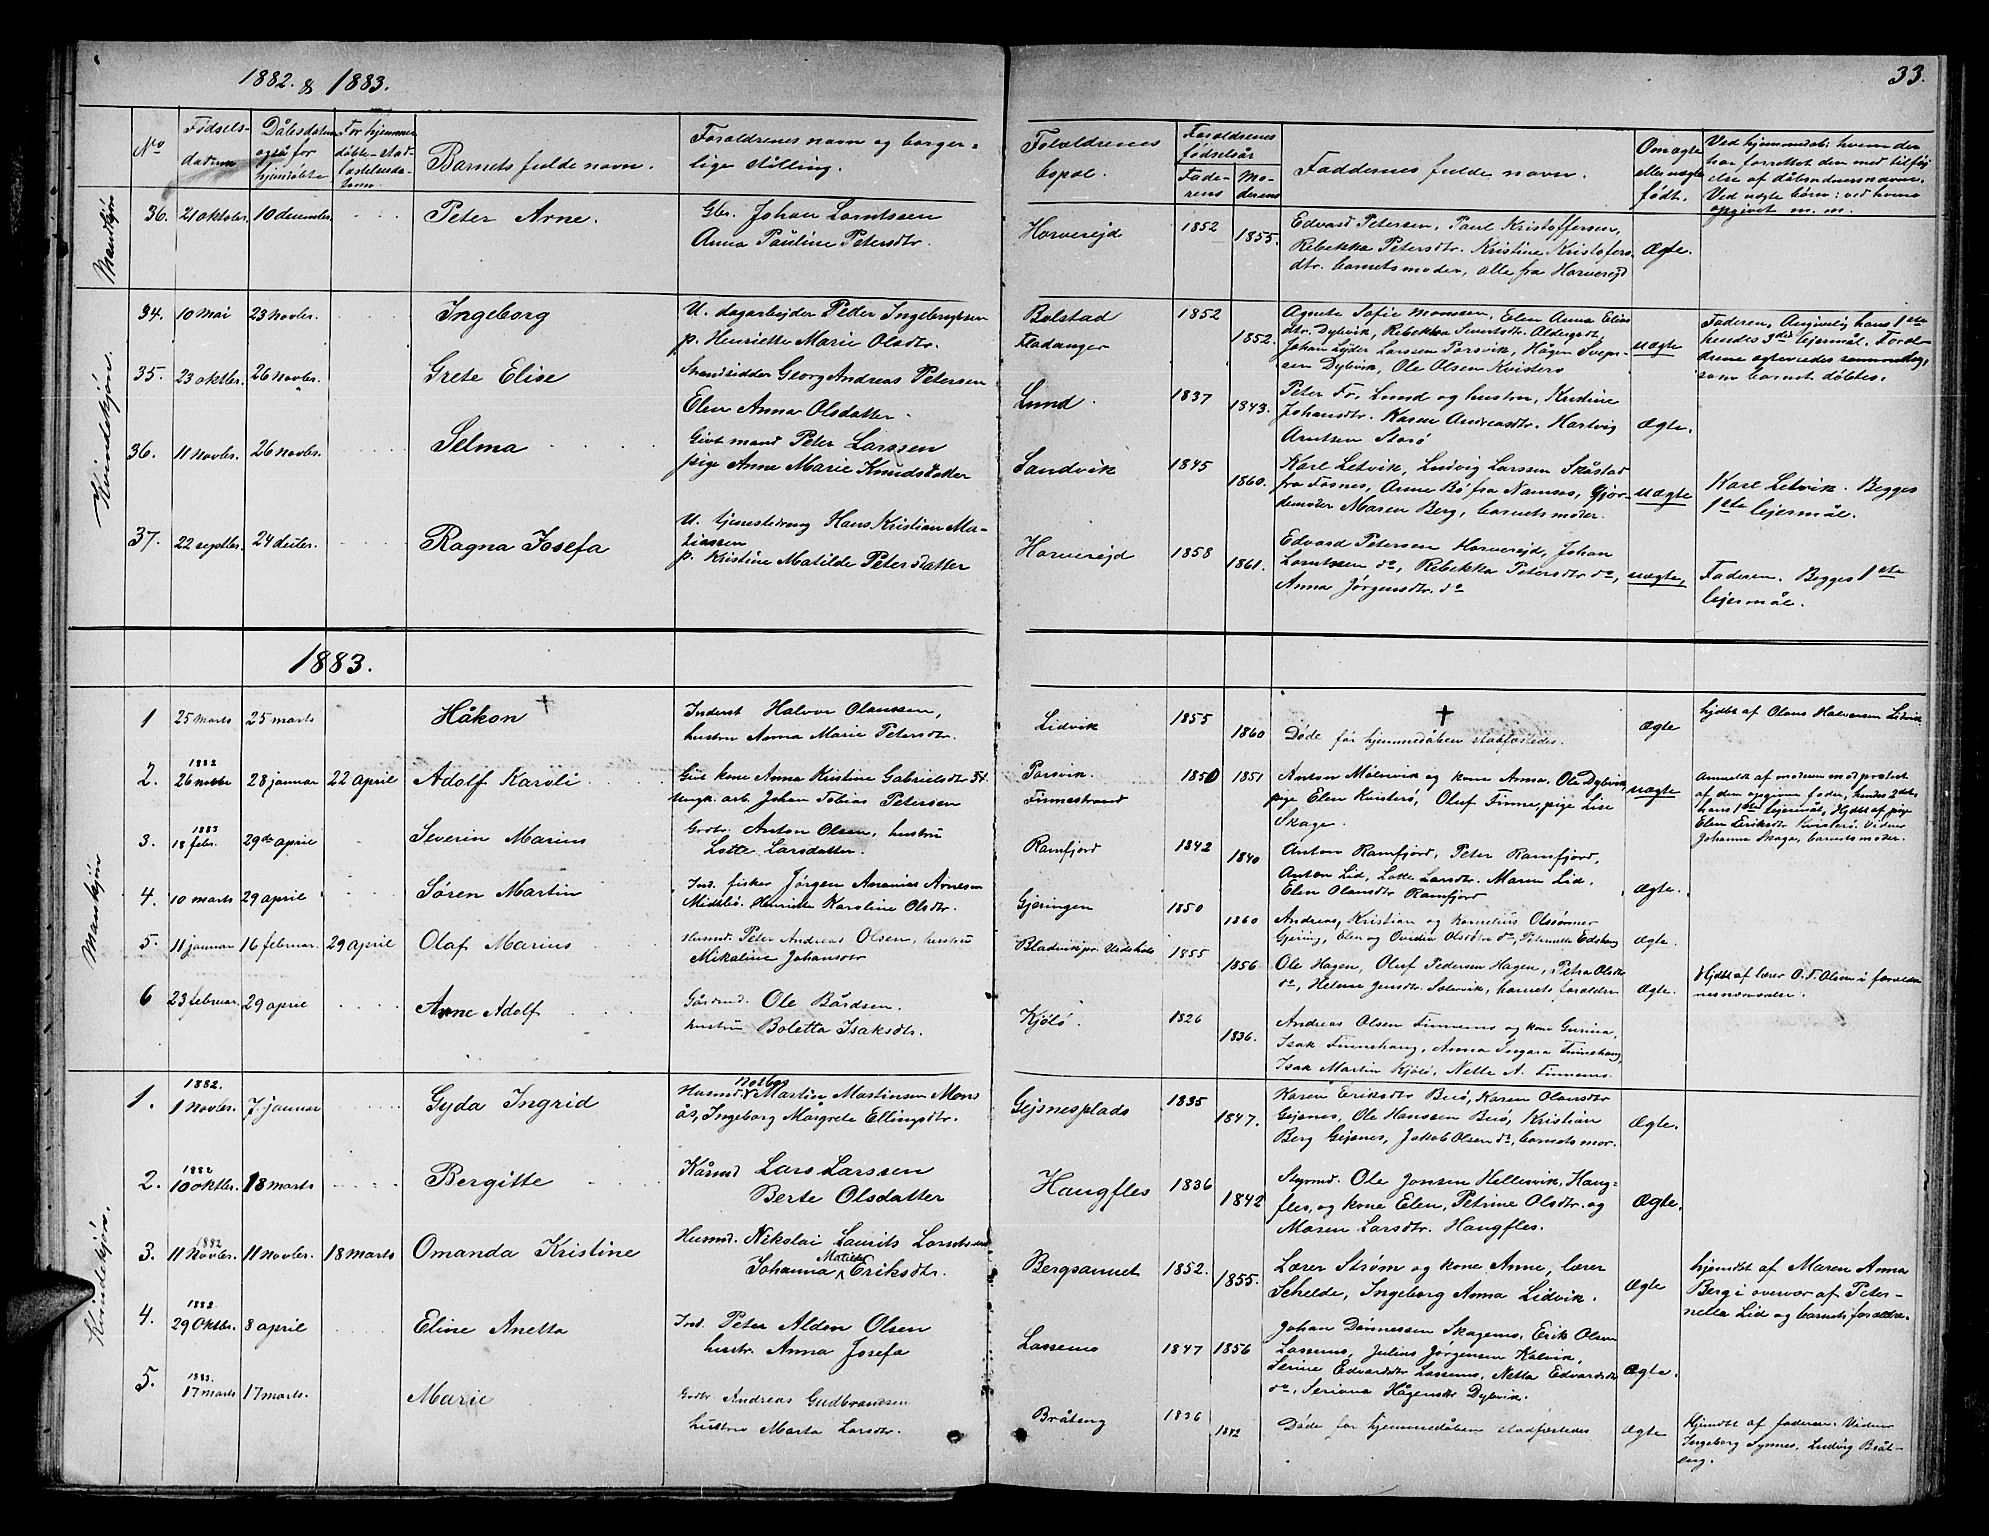 1882. & 1883.
33.
No
Fødsels-
datum
Dåbsdatum
også for
hjemdøbte
For hjemme-
døbte stad-
fæstelsesda-
tum
Barnets fulde navn.
Forældrenes navn og borger-
lige stilling.
Forældrenes
bopæl.
Forældrenes
fødselsår
Fade-
rens
Mo-
derens
Faddernes fulde navn.
Om ægte
eller uægte
født.
Ved hjemmedåb: hvem der
har forrettet den med tilføj
else af dåbsvidnernes navne.
Ved uægte børn: ved hvem
opgivet m. m.
Mandkjøn
36. 21 oktober. 10 december. Peter Arne.
Gbr. Johan Lorntssen
Anna Pauline Petersdtr.
Horverejd 1852 1855.
Edvard Petersen, Paul Kristoffersen,
Rebekka Petersdtr. Kristine Kristofers
dtr. barnets moder, alle fra Horverejd
Ægte.
Kvindekjøn.
34. 10 Mai 23 Novbr. Ingeborg
U. dagarbejder Peder Ingebrigtsen
p. Henriette Marie Olsdtr.
Bolstad
Fladanger
1852 1852.
Agnete Sofie Monssen, Elen Anna Elias
dtr. Dybvik, Rebekka Sivertsdtr.
Johan Ejder Larssen Porsvik, Hågen Svends-
sen Dybvik, Ole Olsen Kvisterø
uægte
Faderen, Angivelig hans 1ste
hendes 3die lejermål. Foræl-
drene ægteviedes samme dag,
som barnet døbtes.
35. 23 oktbr. 26 novbr. Grete Elise
Strandsidder Georg Andreas Petersen
Elen Anna Olsdatter.
Lund. 1837 1843.
Peter Fr. Lund og hustru, Kristine
Johansdtr. Karen Andreasdtr. Hartvig
Arntsen Storø
Ægte.
36. 11 Novbr. 26 Novbr. Selma
Givt mand Peter Larssen
pige Anne Marie Knudsdatter
Sandvik 1845 1860.
Karl Letvik, Ludvig Larssen Skåstad
fra Fosnes, Arne Bø fra Namsos, Gjor-
demoder Maren Berg, barnets moder.
uægte
Karl Letvik. Begges
1ste lejermål.
37. 22 septbr. 24 deibr. Ragna Josefa
U. tjenestedreng Hans Kristian Ma-
tiassen
p. Kristine Matilde Petersdatter
Horverejd 1858 1861.
Edvard Petersen Horverejd, Johan
Lorntssen do, Rebekka Petersdtr do,
Anna Jørgensdtr. do
uægte,
Faderen. Begges 1ste
lejermål.
1883.
Mankjøn
1 25 Marts 25 marts Håkon +
Inderst Halvor Olaussen,
hustru Anna Marie Petersdtr.
Lidvik 1855 1860
+
Døde før hjemmedåben stadfæstedes.
Ægte
hjdbt af Olaus Halvorsen Lidvik
2. 1882
26 novbr 28 januar 22 april Adolf Karoli
Givt kone Anna Kristine Gabrielsdtr
Ungk. arb. Johan Tobias Petersen
Porsvik.
Finnestrand
1850 1851
Anton Mølnvik og kone Anna. Ole Dybvik
pige Elen Kvisterø, Oluf Finne, pige Lise
Skage.
uægte
Anmeldt af modrem mod protest
af den opgivne fader, hendes 2det,
hans 1ste lejermål, Hjdbt af pige
Elen Eriksdtr Kvisterø. Vidner
Johanna Skage, barnets moder.
3. 1883
18 febr. 29de april Severin Marius
Grdbr. Anton Olsen, hustru
Lotte Larsdatter.
Ramfjord 1842 1840
Anton Ramfjord, Peter Ramfjord,
Anton Lid, Lotte Larsdtr. Maren Lid,
Elen Olausdtr Ramfjord
Ægte.
4. 10 marts 29 april Søren Martin
Ind. fisker Jørgen Ananias Arnesen
Midtbø. Henriette Karoline Olsdtr.
Gjæringen 1850 1860
Andreas, Kristian og Kornelius Olssønner
Gjæring, Elen og Ovidia Olsdtre do, Peternelle Edshaug
Ægte.
5. 11 januar 16 februar. 29 april Olaf Marius
Husmd. Peter Andreas Olsen, hustru
Mikaline Johansdtr
1855 1856.
Ole Hagen, Oluf Pedersen Hagen, Petra Olsdtr
do, Helene Jensdtr. Solavik, barnets forældre
Ægte.
Hjdbt af lærer O. T. Olsen i foræld-
nes nærværelse.
6 23 februar. 29 april Arne Adolf
Gårdmd. Ole Bårdsen
hustru Boletta Isaksdtr.
Kjølø. 1826 1836.
Andreas Olsen Finnemo og kone Gurina,
Isak Finnehaug, Anna Ingara Finnehaug
Isak Martin Kjølø, Nette A. Finnemo.
Kvindekjøn.
1. 1882.
1 Novbr. 7. januar Gyda Ingrid
Husmd. Notbas Martin Mortinsen Mons
ås, Ingeborg Margrete Ellingsdtr.
Gejsnesplads 1835 1847.
Karen Eriksdtr Berø, Karen Olausdtr
Gejsnes, Ole Hanssen Berø, Kristian
Berg Gejsnes, Jakob Olsen do, barnets mor.
Ægte.
2. 1882
10 oktbr. 18 marts Bergitte
Kårmd Lars Larssen
Berte Olsdatter
Haugfles 1836 1842
Styrmd. Ole Jonsen Hellesvik, Haug-
fles, og kone Elen, Petrine Olsdtr. og
Maren Larsdtr. Haugfles.
Ægte.
3. 1882
11 Novbr. 11 Novbr. 18 marts Omanda Kristine
Husmd. Nikolai Laurits Lorntssen
Johanna Matilde Eriksdtr.
Bergsaunet 1852. 1855.
Lærer Strøm og kone Anne, lærer
Schelde, Ingeborg Anna Lidvik.
Ægte
hjemdbt af Maren Anna
Berg i overvær af Peter-
nella Lid og barnets forældre.
4. 1882
29 Oktbr. 8 april Eline Anetta
Ind. Peter Alden Olsen
hustr. Anna Josefa
Lassemo 1847 1856
Johan Dønnessen Skagemo, Erik Olsen
Lassemo, Julius Jørgensen Kalvik,
Serine Edvardsdtr Lassemo, Netta Edvardsdtr
do, Seriana Hågensdtr Dybvik.
Ægte.
5. 1883.
17 marts 17 marts. Marie
Grdbr Andreas Gudbrandsen
hustru Marta Larsdtr.
Bråteng 1836 1842
Døde før hjemmedåben stadfæstedes
Ægte
Hjemdbt af faderen. Vidner
Ingeborg Synnes, Ludvig Bråt-
eng.